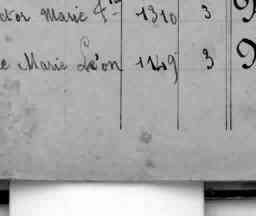 ctor Marie F 1310 3
e Marie Léon 1149 3